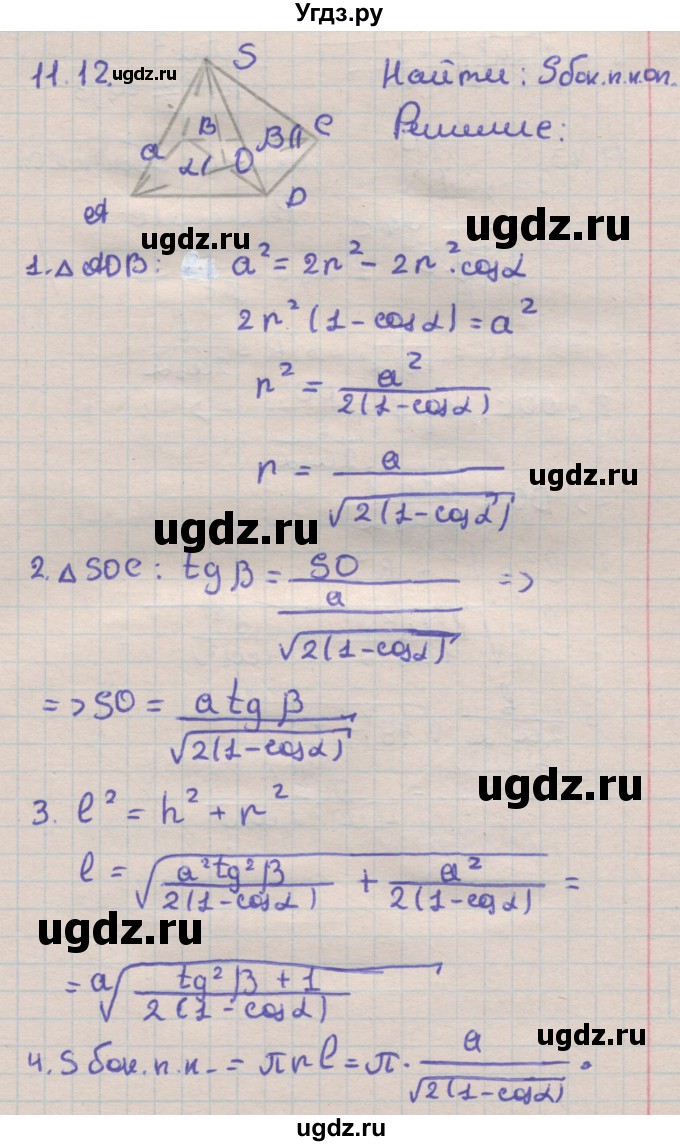 Угдз.ру
11.12.
ugdz.ru
S
Найти: Sбок.п.кон.
B
β
C
Решение:
a
α
O
A
D
ugdz.ru
ugdz.ru
1. △ AOB: a² = 2r² - 2r²·cosα
2r²(1-cosα) = a²
r² = a² / 2(1-cosα)
r = a / √2(1-cosα)
ugdz.ru
ugdz.ru
2. △ SOC: tgβ = SO / (a / √2(1-cosα)) =>
=> SO = a tgβ / √2(1-cosα)
ugdz.ru
3. l² = h² + r²
l = √(a²tg²β / 2(1-cosα) + a² / 2(1-cosα)) =
ugdz.ru
= a√(tg²β + 1 / 2(1-cosα))
ugdz.ru
4. S бок.п.к. = πrl = π· a / √2(1-cosα) ·
ugdz.ru